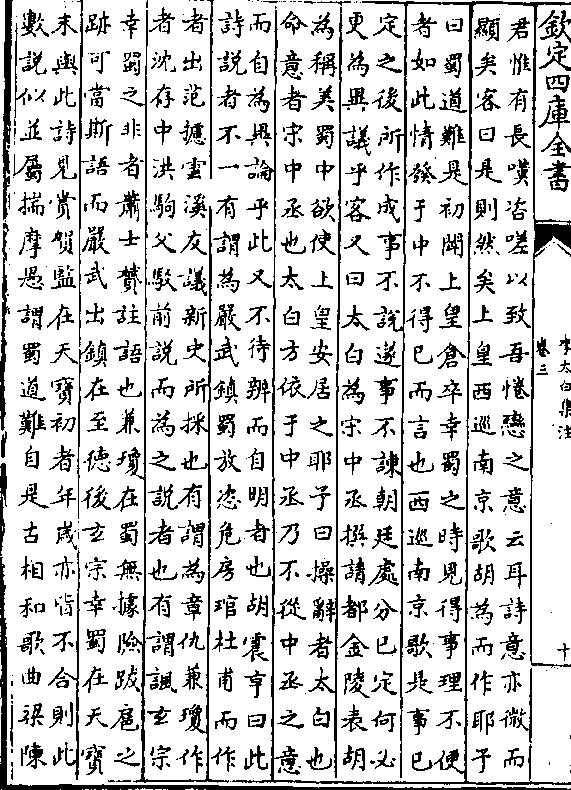 欽定四庫全書
李太白集注
卷三
十
君惟有長嘆咨嗟以致吾惓戀之意云耳詩意亦微而
顯矣客曰是則然矣上皇西巡南京歌胡為而作耶予
曰蜀道難是初聞上皇倉卒幸蜀之時見得事理不便
者如此情發于中不得已而言也西巡南京歌是事已
定之後所作成事不說遂事不諫朝廷處分已定何必
更為異議乎客又曰太白為宋中丞撰請都金陵表胡
為稱美蜀中欲使上皇安居之耶予曰操辭者太白也
命意者宋中丞也太白方依于中丞乃不從中丞之意
而自為異論乎此又不待辨而自明者也胡震亨曰此
詩說者不一有謂為嚴武鎮蜀放恣危房琯杜甫而作
者出范攄雲溪友議新史所採也有謂為章仇兼瓊作
者沈存中洪駒父駁前說而為之說者也有謂諷玄宗
幸蜀之非者蕭士贇註語也兼瓊在蜀無據險跋扈之
跡可當斯語而嚴武出鎮在至德後玄宗幸蜀在天寶
末與此詩見賞賀監在天寶初者年歲亦皆不合則此
數說似並屬揣摩愚謂蜀道難自是古相和歌曲梁陳